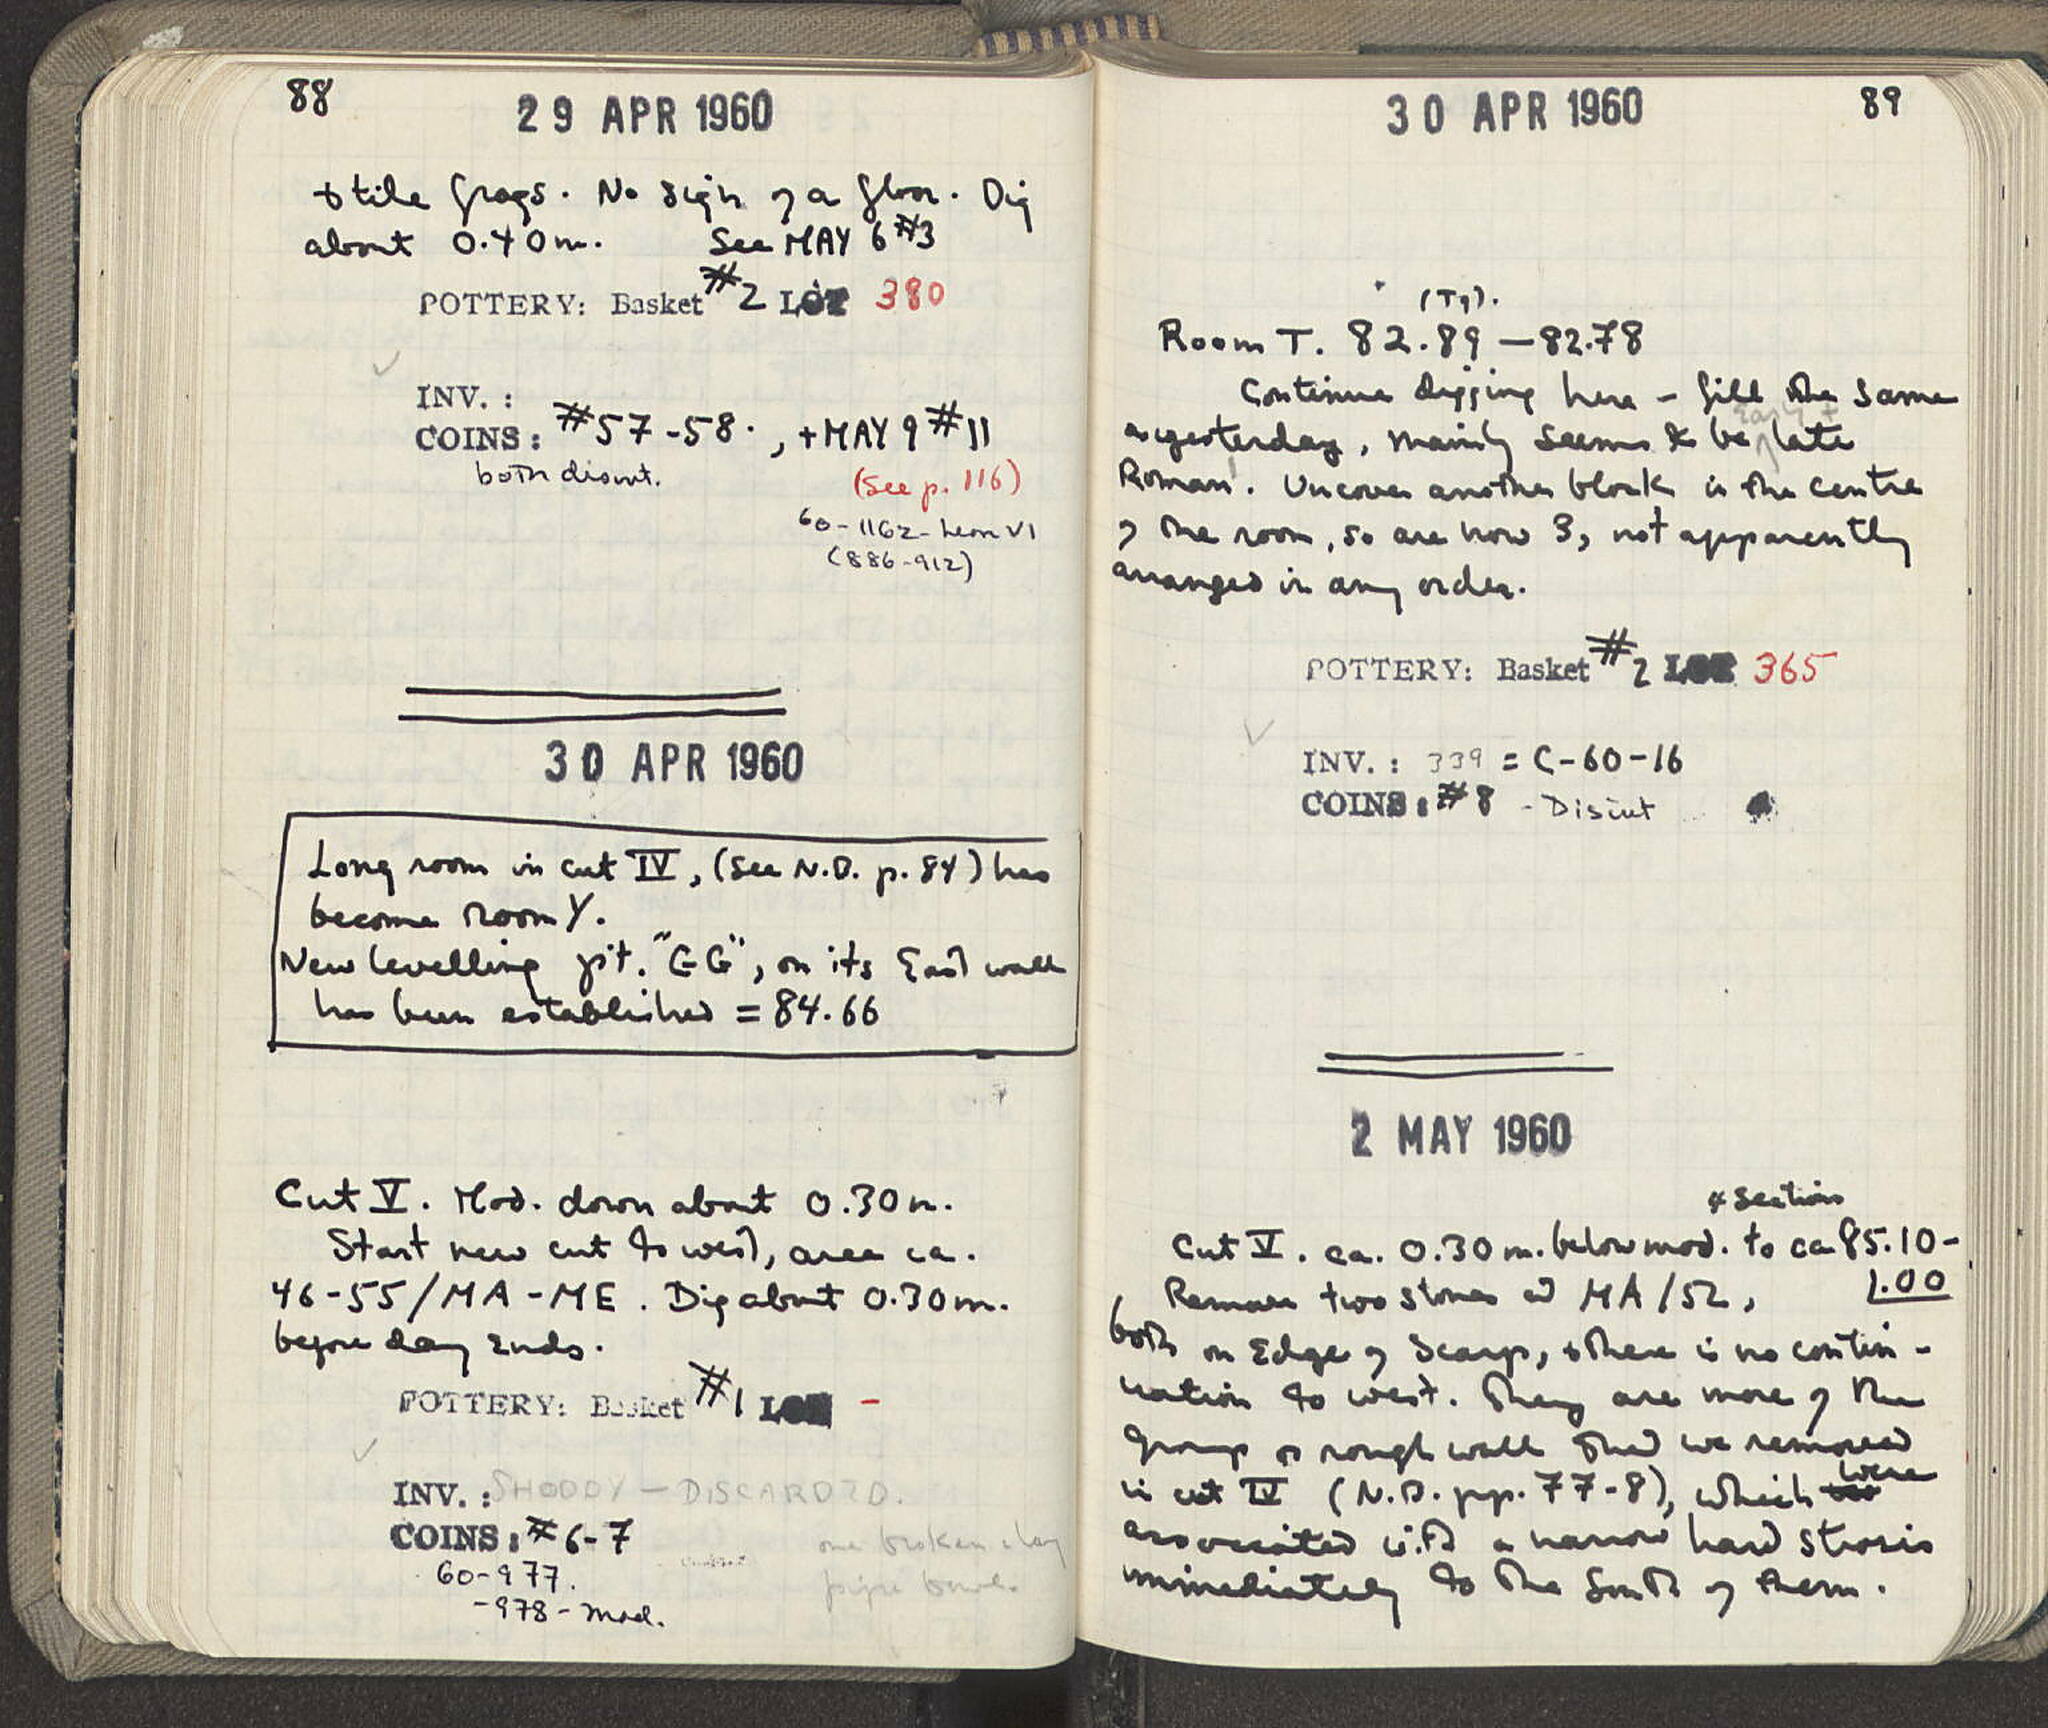 88
29 APR 1960
+ tile frags. No sign of a floor. Dig
about 0.40m. See MAY 6 #3
POTTERY: Basket #2 LOT 380
INV. :
COINS: #57-58. , + MAY 9 #11
both disint.
(See p. 116)
60-1162- Leon VI
(886-912)
30 APR 1960
Long room in cut IV, (see N.B. p. 84) has
become room Y.
New levelling pt. "GG", on its East wall
has been established = 84.66
Cut V. Mod. down about 0.30m.
Start new cut to west, area ca.
46-55/MA-ME. Dig about 0.30m.
before day ends.
POTTERY: Basket #1 LOT -
INV. : SHODDY - DISCARDED.
COINS: #6-7
one broken clay
60-977.
pipe bowl.
-978- mod.
89
30 APR 1960
(T1).
Room T. 82.89 - 82.78
Continue digging here - fill the same
as yesterday, mainly seems to be early + late
Roman. Uncover another block in the centre
of the room, so are now 3, not apparently
arranged in any order.
POTTERY: Basket #2 LOT 365
INV. : 339 = C-60-16
COINS: #8 - Disint
2 MAY 1960
+ Section
Cut V. ca. 0.30m. below mod. to ca 85.10-
1.00
Remove two stones at MA/52,
both on Edge of Scarp, + there is no contin-
uation to west. They are more of the
group or rough wall that we removed
in cut IV (N.B. pp. 77-8), which were
associated with a narrow hard strosis
immediately to the South of them.